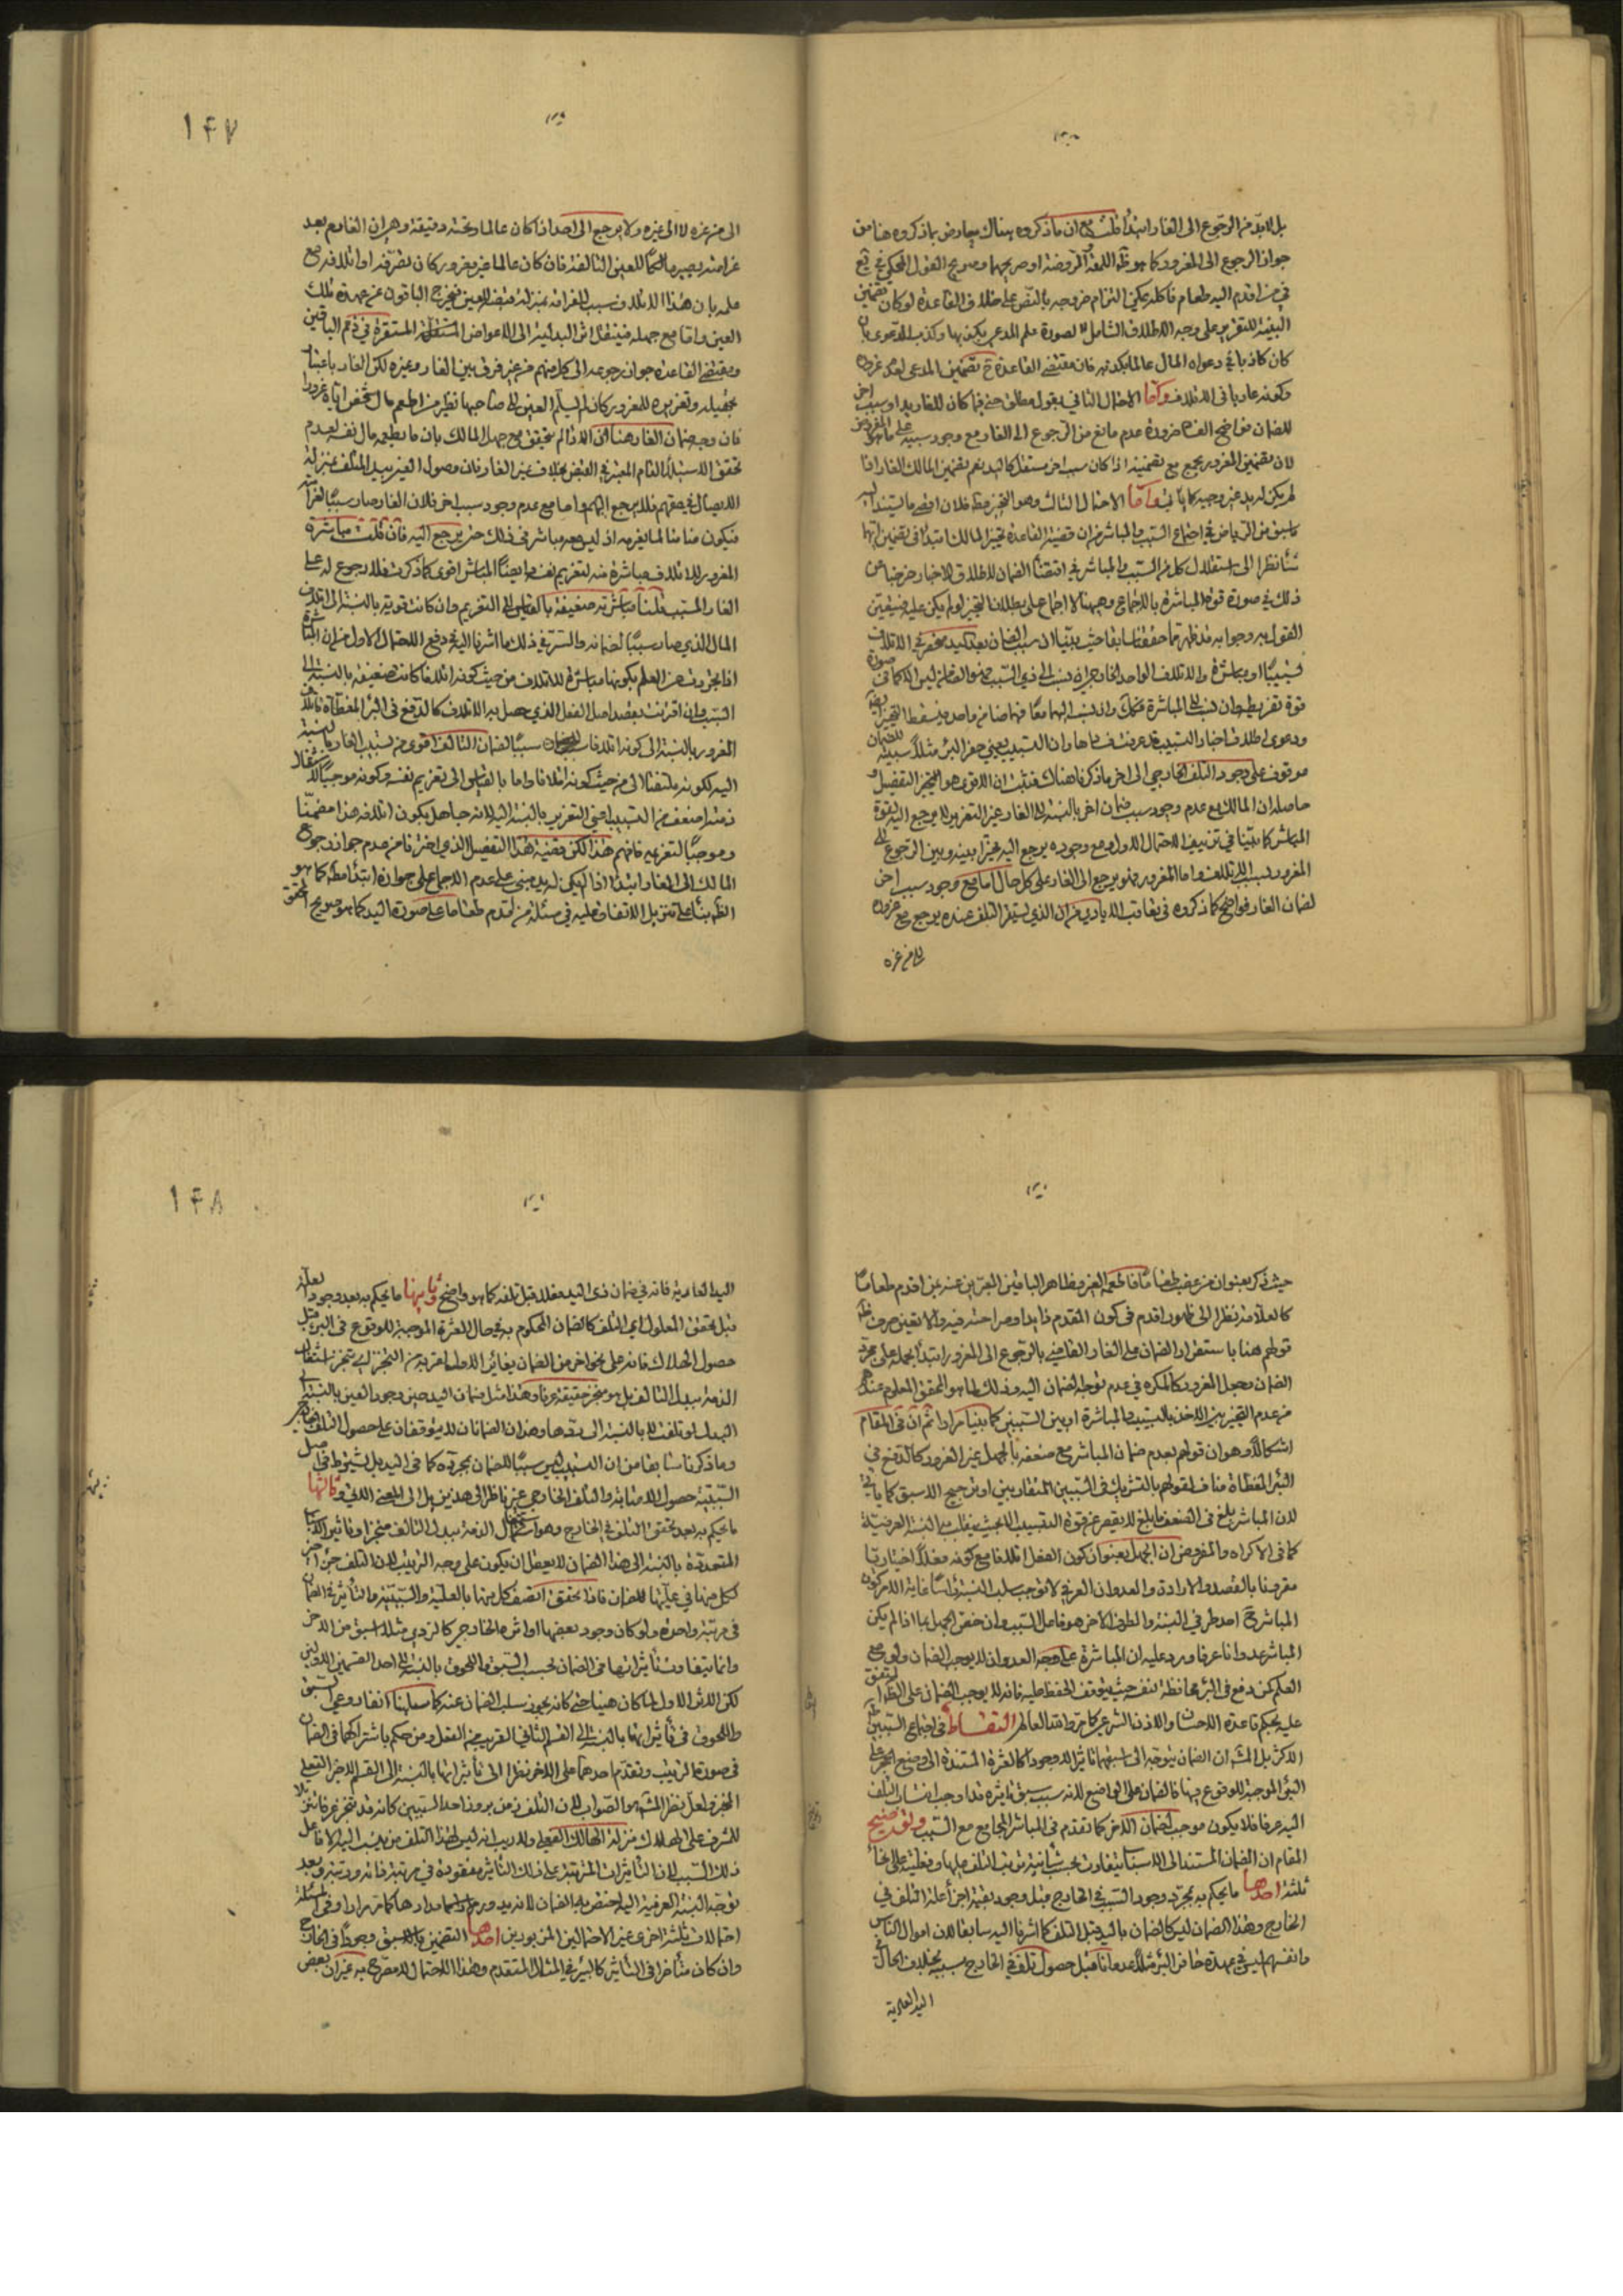 بل لا بد من الرجوع الى الغار ابتدأ قلت مع ان ما ذكروه هناك يعارض بما ذكروه هنا من
جواز الرجوع الى المغرور كما هو اللمعة الروضة او صريحهما وصريح القول المحكي في
من اقدم اليه طعام فاكله يمكن التزام خروجه بالنص على خلاف القاعدة لو كان تضمين
البينة للتغرير على وجه الاطلاق الشامل لصورة علم المدعي بكذبها وكذب الدعوى
كان كاذبا في دعواه المال عالما بكذبه فان مقتضى القاعدة ح تضمين المدعى
وكونه عاديا في الاتلاف واما الاحتمال الثاني حتى فيما كان للغار يد او سبب اخر
للضمان فواضح الفساد ضرورة عدم مانع من الرجوع الى الغار مع وجود سببه
لان تضمين المغرور يجمع مع تضمينه اذا كان سبب اخر مستقل كاليد نعم تضمين المالك الغار اذا
لم يكن له يد غير وجيه كما يأتي واما الاحتمال الثالث وهو التخيير مط فلان اقصى ما يستند اليه
ما سبق من الرياض في اجتماع السبب والمباشر من ان قضية القاعدة تخيير المالك ابتدأ في تضمين ايهما
شأ نظرا الى استقلال كل من السبب والمباشر في اقتضأ الضمان لاطلاق الاخبار خرجنا عن
ذلك في صورة قوة المباشرة بالاجماع وجهنا لا اجماع على بطلان التخيير لو لم يكن عليه
القول به وجوابه قد ظهر مما حققنا سابقا حيث بينا ان سبب الضمان بعد اليد منحصر في الاتلاف
تسبيبا او مباشرة والاتلاف الواحد الخارجي اذا نسب الى ذي السبب فهو الضامن ليس الا كما في صورة
قوة تفريط وان نسب الى المباشرة فكك وان نسب اليهما معا فهما ضامن واحد فيسقط التخيير
ودعوى اطلاق اخبار التسبيب قد عرفت فسادها وان التسبيب يعني حفر البئر مثلا سببيته للضمان
موقوف على وجود التلف الخارجي الى اخر ما ذكرنا هناك فثبت ان الاقوى هو التخيير التفصيل و
حاصله ان المالك مع عدم وجود سبب ضمان اخر بالنسبة الى الغار غير التغرير لا يرجع اليه لقوة
المباشر كما بينا في تزييف الاحتمال الاول ومع وجوده يرجع اليه مخيرا بينه وبين الرجوع الى
المغرور لسبب الاتلاف واما المغرور فهو يرجع الى الغار على كل حال اما مع وجود سبب اخر
لضمان الغار فواضح كما ذكروه في تعاقب الايادي من ان الذي يستقر التلف عنده يرجع مع غروره
الى من غره
١٤٧
الى من غره لا الى غيره ولا يرجع الى احد اذا كان عالما وتحته دقيقة وهي ان الغارم بعد
غرامته يصير مالكا للعين التالفة فان كان عالما غير مغرور كان تصرفه او اتلافه مع
علمه بان هذا الاتلاف سبب للغرامة بمنزلة قبضه العين فيخرج الباقون عن عهدة تلك
العين واما مع جهله فينتقل اثر اليد الى الاعواض المستقرة في ذمم الباقين
ومقتضى القاعدة جواز رجوعه الى كل منهم من غير فرق بين الغار وغيره لكن الغار باعتبار
تجهيله وتغريره للمغرور كان لم يسلم العين الى صاحبها نظير من اطعم مال شخص اياه غرورا
فان وجه ضمان الغار هنا ان الاذن لم يتحقق مع جهل المالك بان ما يطعمه مال نفسه لعدم
تحقق الاستيلاء التام المعتبر في القبض بخلاف غير الغار فان وصول العين بيد المتلف بمنزلة
الايصال في حقهم فلا يرجع اليهم واما مع عدم وجود سبب اخر فلان الغار صار سببا لغرامته
فيكون ضامنا لما يغرمه اذ ليس معه مباشر في ذلك حتى يرجع اليه فان قلت مباشرة
المغرور للاتلاف مباشرة منه لتغريم نفسه ايضا المباشر اقوى كما ذكرت فلا رجوع له على
الغار المتسبب قلنا مباشرته ضعيفة بالقياس الى التغريم وان كانت قوية بالنسبة الى اتلاف
المال الذي صار سببا لضمانه والسر في ذلك ما اشرنا اليه في دفع الاحتمال الاول من ان المباشرة
اذا تجردت عن العلم بكونها مباشرة للاتلاف من حيث كونه اتلافا كانت ضعيفة بالنسبة الى
السبب وان اقترنت بقصد اصل الفعل الذي حصل به الاتلاف كالدفع في البئر المغطاة فاتلاف
المغرور بالنسبة الى كونه اتلافا سببا لضمان التالف اقوى من تسبيب الغار بالنسبة
اليه لكونه ملتفتا الى من حيث كونه اتلافا واما بالقياس الى تغريم نفسه وكونه موجبا لاشتغال
ذمته اضعف من التسبيب اعني التغرير بالنسبة اليه لانه جاهل بكون اتلافه هذا مضمنا
وموجبا لتغريمه فافهم هذا لكن قضية هذا التفصيل الذي اخترنا من عدم جواز رجوع
المالك الى الغار ابتدأ اذا لم يكن له يد مبني على عدم الاجماع على جوازه ابتدأ مط كما هو
الظ بناء على تنزيل الاتفاق عليه في مسئلة من قدم طعاما على صورة اليد كما هو صريح المحقق
حيث ذكر بعنوان من غصب طعاما فاطعمه الغير وظاهر الباقين المعبرين عنه بمن اقدم طعاما
كالعلامة نظرا الى ظهور اقدم في كون المقدم ذا يد وصراحته فيه والا تعين صرف ظ
قولهم هنا باستقرار الضمان على الغار القاضي بالرجوع الى المغرور ابتدأ بحمله على مجرد
الضمان وجعل المغرور كالمكره في عدم توجه الضمان اليه وذلك لما هو المحقق المعلوم عندهم
من عدم التخيير بين الاخذ بالسبب والمباشرة او بين السببين كما بينا مرارا ثم ان في المقام
اشكالا وهو ان قولهم بعدم ضمان المباشر مع ضعفه بالجهل غير الغرور كالدفع في
البئر المغطاة مناف لقولهم بالتشريك في السببين المتقاربين او ترجيح الاسبق كما يأتي
لان المباشر يبلغ في الضعف ما بلغ لا يقصر عن قوة التسبيب بحيث يسلب النسبة العرفية
كما في الاكراه والمفروض ان الجهل بعنوان كون الفعل اتلافا مع كونه فعلا اختياريا
مقرونا بالقصد والارادة والعدوان العرفي لا توجب سلب النسبة راسا غاية الامر كون
المباشر ح احد طرفي النسبة والطرف الاخر هو فاعل السبب وان خص الجهل بما اذا لم يكن
المباشر عدوانا عرفا ورد عليه ان المباشرة على وجه العدوان لا يوجب الضمان ولو مع
العلم كمن دفع في البئر محافظة لنفسه حيث يتوقف الحفظ عليه فانه لا يوجب الضمان على الظ المتفق
عليه بحكم قاعدة الاحسان والاذن الشرعي كما مر والله العالم التقاط في اجتماع السببين
الاكثر بل المش ان الضمان يتوجه الى اسبقهما تاثيرا لا وجودا كالعثرة المستندة الى وضع الحجر على
البئر الموجبة للوقوع فيها فالضمان على الواضع لانه سبب سبق تاثيره فاوجب انتساب التلف
اليه عرفا فلا يكون موجب لضمان الاخر كما تقدم في المباشر المجامع مع السبب وتوضيح
المقام ان الضمان المستند الى الاسباب يتفاوت بحسب شأنية ترتب التلف عليها وفعليته على انحاء
ثلثة احدها ما يحكم به بمجرد وجود السبب في الخارج قبل وجود بقية اجزأ علة التلف في
الخارج وهذا الضمان ليس كالضمان باليد قبل التلف كما اشرنا اليه سابقا لان اموال الناس
وانفسهم ليس في عهدة حافر البئر مثلا عدوانا قبل حصول تلف في الخارج بسببه بخلاف الحال
اليد العادية
١٤٨
اليد العادية فانه في ضمان ذي اليد فعلا قبل تلفه كما هو واضح وثانيها ما يحكم به بعد وجود العلة
قبل تحقق المعلول اي التلف كالضمان المحكوم به في حال العثرة الموجبة للوقوع في البئر قبل
حصول الهلاك فانه على نحو اخر من الضمان يغاير الاول لقربه من التنجز اي تنجز اشتغال
الذمة ببدل التالف بل هو منجز حقيقة عرفا وهذا مثل ضمان اليد حين وجود العين بالنسبة الى
البدل لو تلفت بالنسبة الى ردها وهذان الضمانان لا يتوقفان على حصول التلف في الخارج
وما ذكرنا سابقا من ان السبب ليس سببا للضمان بمجرده كما في اليد بل يشترط في
السببية حصول الاصابة والتلف الخارجي غير ناظر الى هذين بل الى المعنى الاتي وثالثها
ما يحكم به بعد تحقق التلف في الخارج وهو اشتغال الذمة ببدل التالف منجزا وتاثير الاسباب
المتعددة بالنسبة الى هذا الضمان لا يعقل ان يكون على وجه الترتيب لان التلف جزء اخير
لكل منها في عليتها للضمان فاذا تحقق اتصف كل منها بالعلية والسببية والتأثير في الضمان
في مرتبة واحدة ولو كان وجود بعضها او اثره الخارجي كالتردي مثلا اسبق من الاخر
وانما يتفاوت تأثيراتها في الضمان بحسب السبق واللحوق بالنسبة الى احد القسمين الاولين
لكن الاثر الاول لما كان هينا حتى كانه يجوز سلب الضمان عنه كما سبق
واللحوق في تأثيراتها بالنسبة الى القسم الثاني القريب من الفعل ومن حكم باشتراكهما في الضمان
في صورة الترتيب وتقدم احدهما على الاخر نظرا الى تأثيراتها بالنسبة الى القسم الاخير الفعلي
المنجز ولعل نظر المش هو الصواب لان التلف في زمن بروز احد السببين كانه قد تنجز عرفا تنزيلا
للمشرف على الهلاك منزلة الهالك الفعلي ولا ريب انه ليس لهذا التلف من ينسب اليه الا فاعل
ذلك السبب لان التاثيرات المترتبة على ذلك التاثير مفقودة في مرتبة فانه ورتبته وبعد
توجه النسبة العرفية اليه اختص به الضمان لانه يدور مدارها كما مر مرارا وفي المسئلة
احتمالات ثلثة اخرى غير الاحتمالين المزبورين احدها التضمين بالاسبق وجودا في الخارج
وان كان متأخرا في التأثير كالبئر في المثال المتقدم وهذا الاحتمال لا مصرح به غير ان بعض